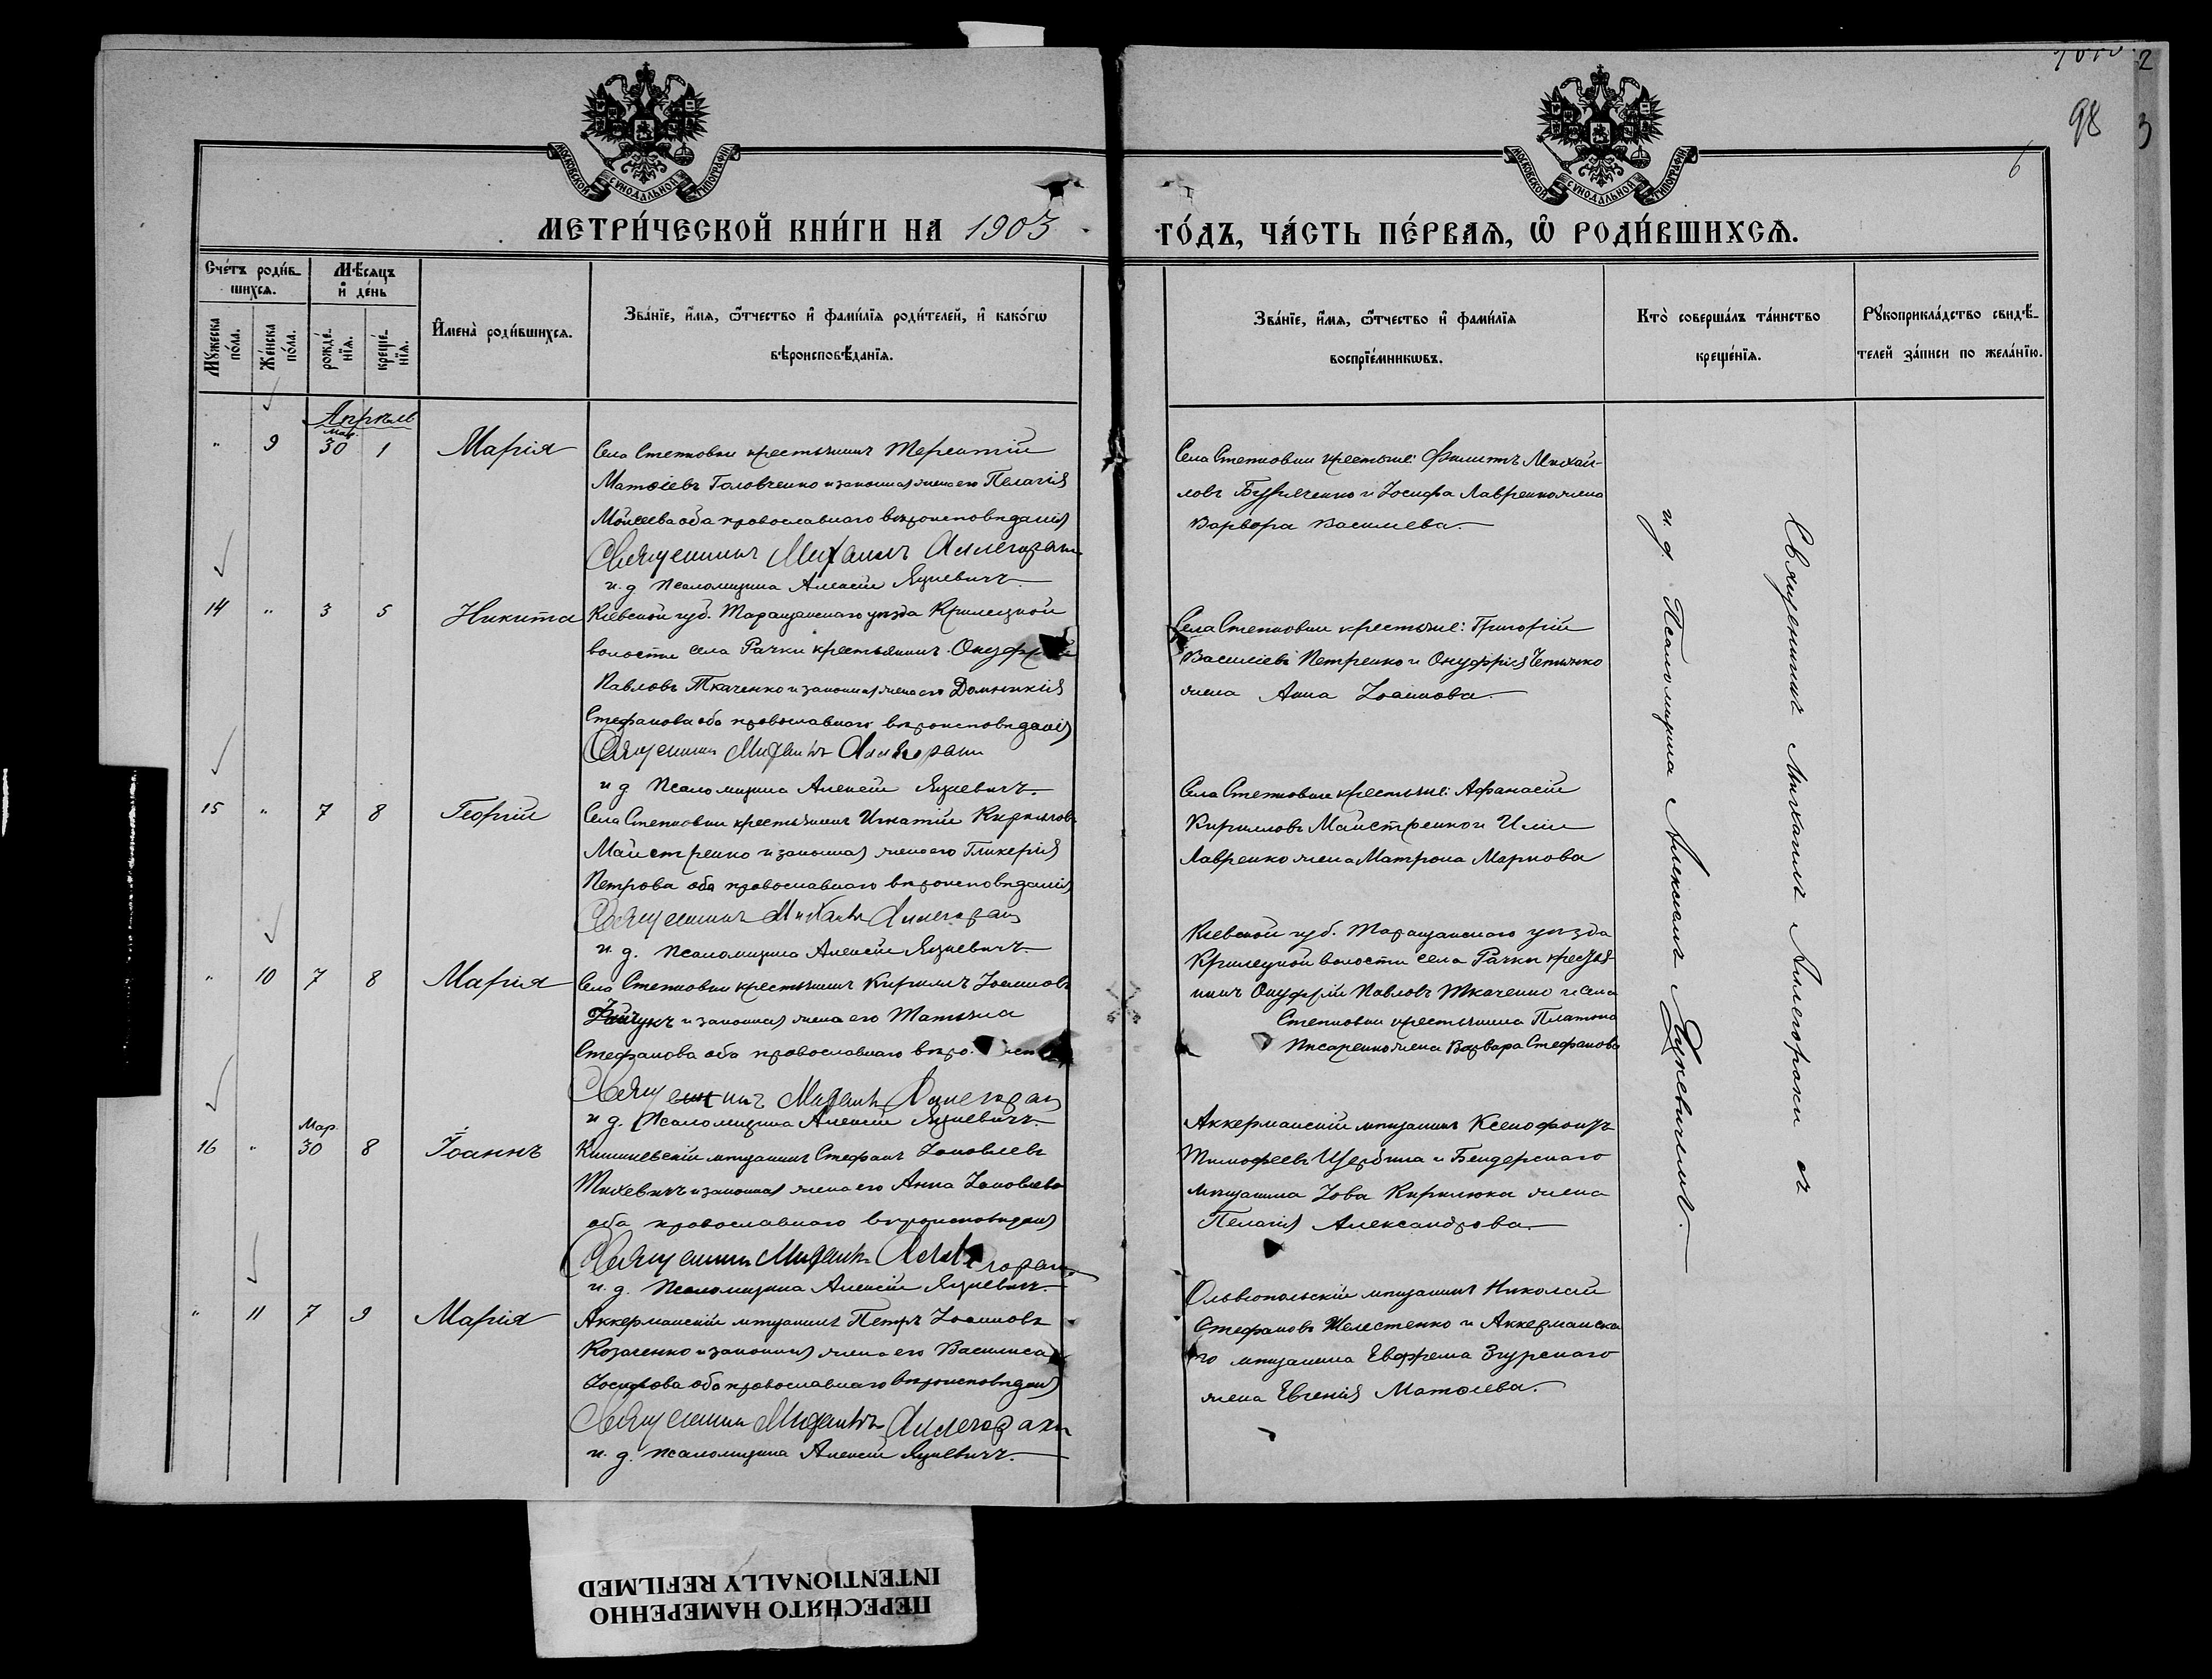 98
2
3
6
МОСКОВСКОЙ СѴНОДАЛЬНОЙ ТИПОГРАФІИ
МОСКОВСКОЙ СѴНОДАЛЬНОЙ ТИПОГРАФІИ
МЕТРИ́ЧЕСКОЙ КНИ́ГИ НА 1903
ГО́ДЪ, ЧА́СТЬ ПЕ́РВАЯ, Ѡ҆ РОДИ́ВШИХСЯ.
Сче́тъ роди́в-
шихся.
Мѣ́сяцъ
и҆ де́нь
Му́жеска по́ла.
Же́нска по́ла.
рожде́-
нїя.
креще́-
нїя.
И҆мена̀ роди́вшихся.
Зва́нїе, и҆́мя, ѻ҆́тчество и҆ фами́лїя роди́телей, и҆ како́гѡ
вѣроисповѣ́данїя.
Зва́нїе, и҆́мя, ѻ҆́тчество и҆ фами́лїя
воспрїе́мникѡвъ.
Кто̀ соверша́лъ та́инство
креще́нїя.
Рꙋкоприкла́дство свидѣ́-
телей за́писи по жела́нїю.
Апрѣль
Май
" 9 30 1 Марія
Села Степковки крестьянинъ Терентій
Матѳіевъ Головченко и законная жена его Пелагія
Моисеева оба православнаго вѣроисповѣданія
Священникъ Михаилъ
и. д. Псаломщика Алексѣй Яцкевичъ.
Села Степковки крестьяне: Филиппъ Михай-
ловъ и Іосифа Лавренко жена
Варвара Васильева.
14 " 3 5 Никита
Кіевской губ. Таращанскаго уѣзда
волости села Рачки крестьянинъ Онуфрій
Павловъ Ткаченко и законная жена его Домникія
Стефанова оба православнаго вѣроисповѣданія
Священникъ Михаилъ
и д Псаломщика Алексѣй Яцкевичъ.
Села Степковки крестьяне: Григорій
Василіевъ Петренко и Онуфрія
жена Анна Іоаннова.
15 " 7 8 Георгій
Села Степковки крестьянинъ Игнатій Кирилловъ
Майстренко и законная жена его Гликерія
Петрова оба православнаго вѣроисповѣданія
Священникъ Михаилъ
и. д. Псаломщика Алексѣй Яцкевичъ.
Села Степковки крестьяне: Афанасій
Кирилловъ Майстренко и Иліи
Лавренко жена Матрона Маркова
" 10 7 8 Марія
Села Степковки крестьянинъ Кириллъ Іоанновъ
и законная жена его Татьяна
Стефанова оба православнаго
Священникъ Михаилъ
и д. Псаломщика Алексѣй Яцкевичъ.
Кіевской губ. Таращанскаго уѣзда
волости села Рачки крестья-
нинъ Онуфрій Павловъ Ткаченко и села
Степковки крестьянина Платона
Писаренко жена Варвара Стефанова
Мар.
16 " 30 8 Іоаннъ
Кишиневскій мѣщанинъ Стефанъ Іаковлевъ
и законная жена его Анна Іаковлева
оба православнаго вѣроисповѣданія
Священникъ Михаилъ
и. д. Псаломщика Алексѣй Яцкевичъ.
Аккерманскій мѣщанинъ Ксенофонтъ
Тимофеевъ Щербина и Бендерскаго
мѣщанина Іова Кирилюка жена
Пелагія Александрова.
" 11 7 9 Марія
Аккерманскій мѣщанинъ Петръ Іоанновъ
Козаченко и законная жена его Василиса
Іосифова оба православнаго вѣроисповѣданія
Священникъ Михаилъ
и. д. Псаломщика Алексѣй Яцкевичъ.
Ольвіопольскій мѣщанинъ Николай
Стефановъ Шелестенко и Аккерманска-
го мѣщанина Евфрема Згурскаго
жена Евгенія Матѳіева.
Священникъ Михаилъ съ
и. д. Псаломщика Алексѣемъ Яцкевичемъ.
ПЕРЕСНЯТО НАМЕРЕННО
INTENTIONALLY REFILMED